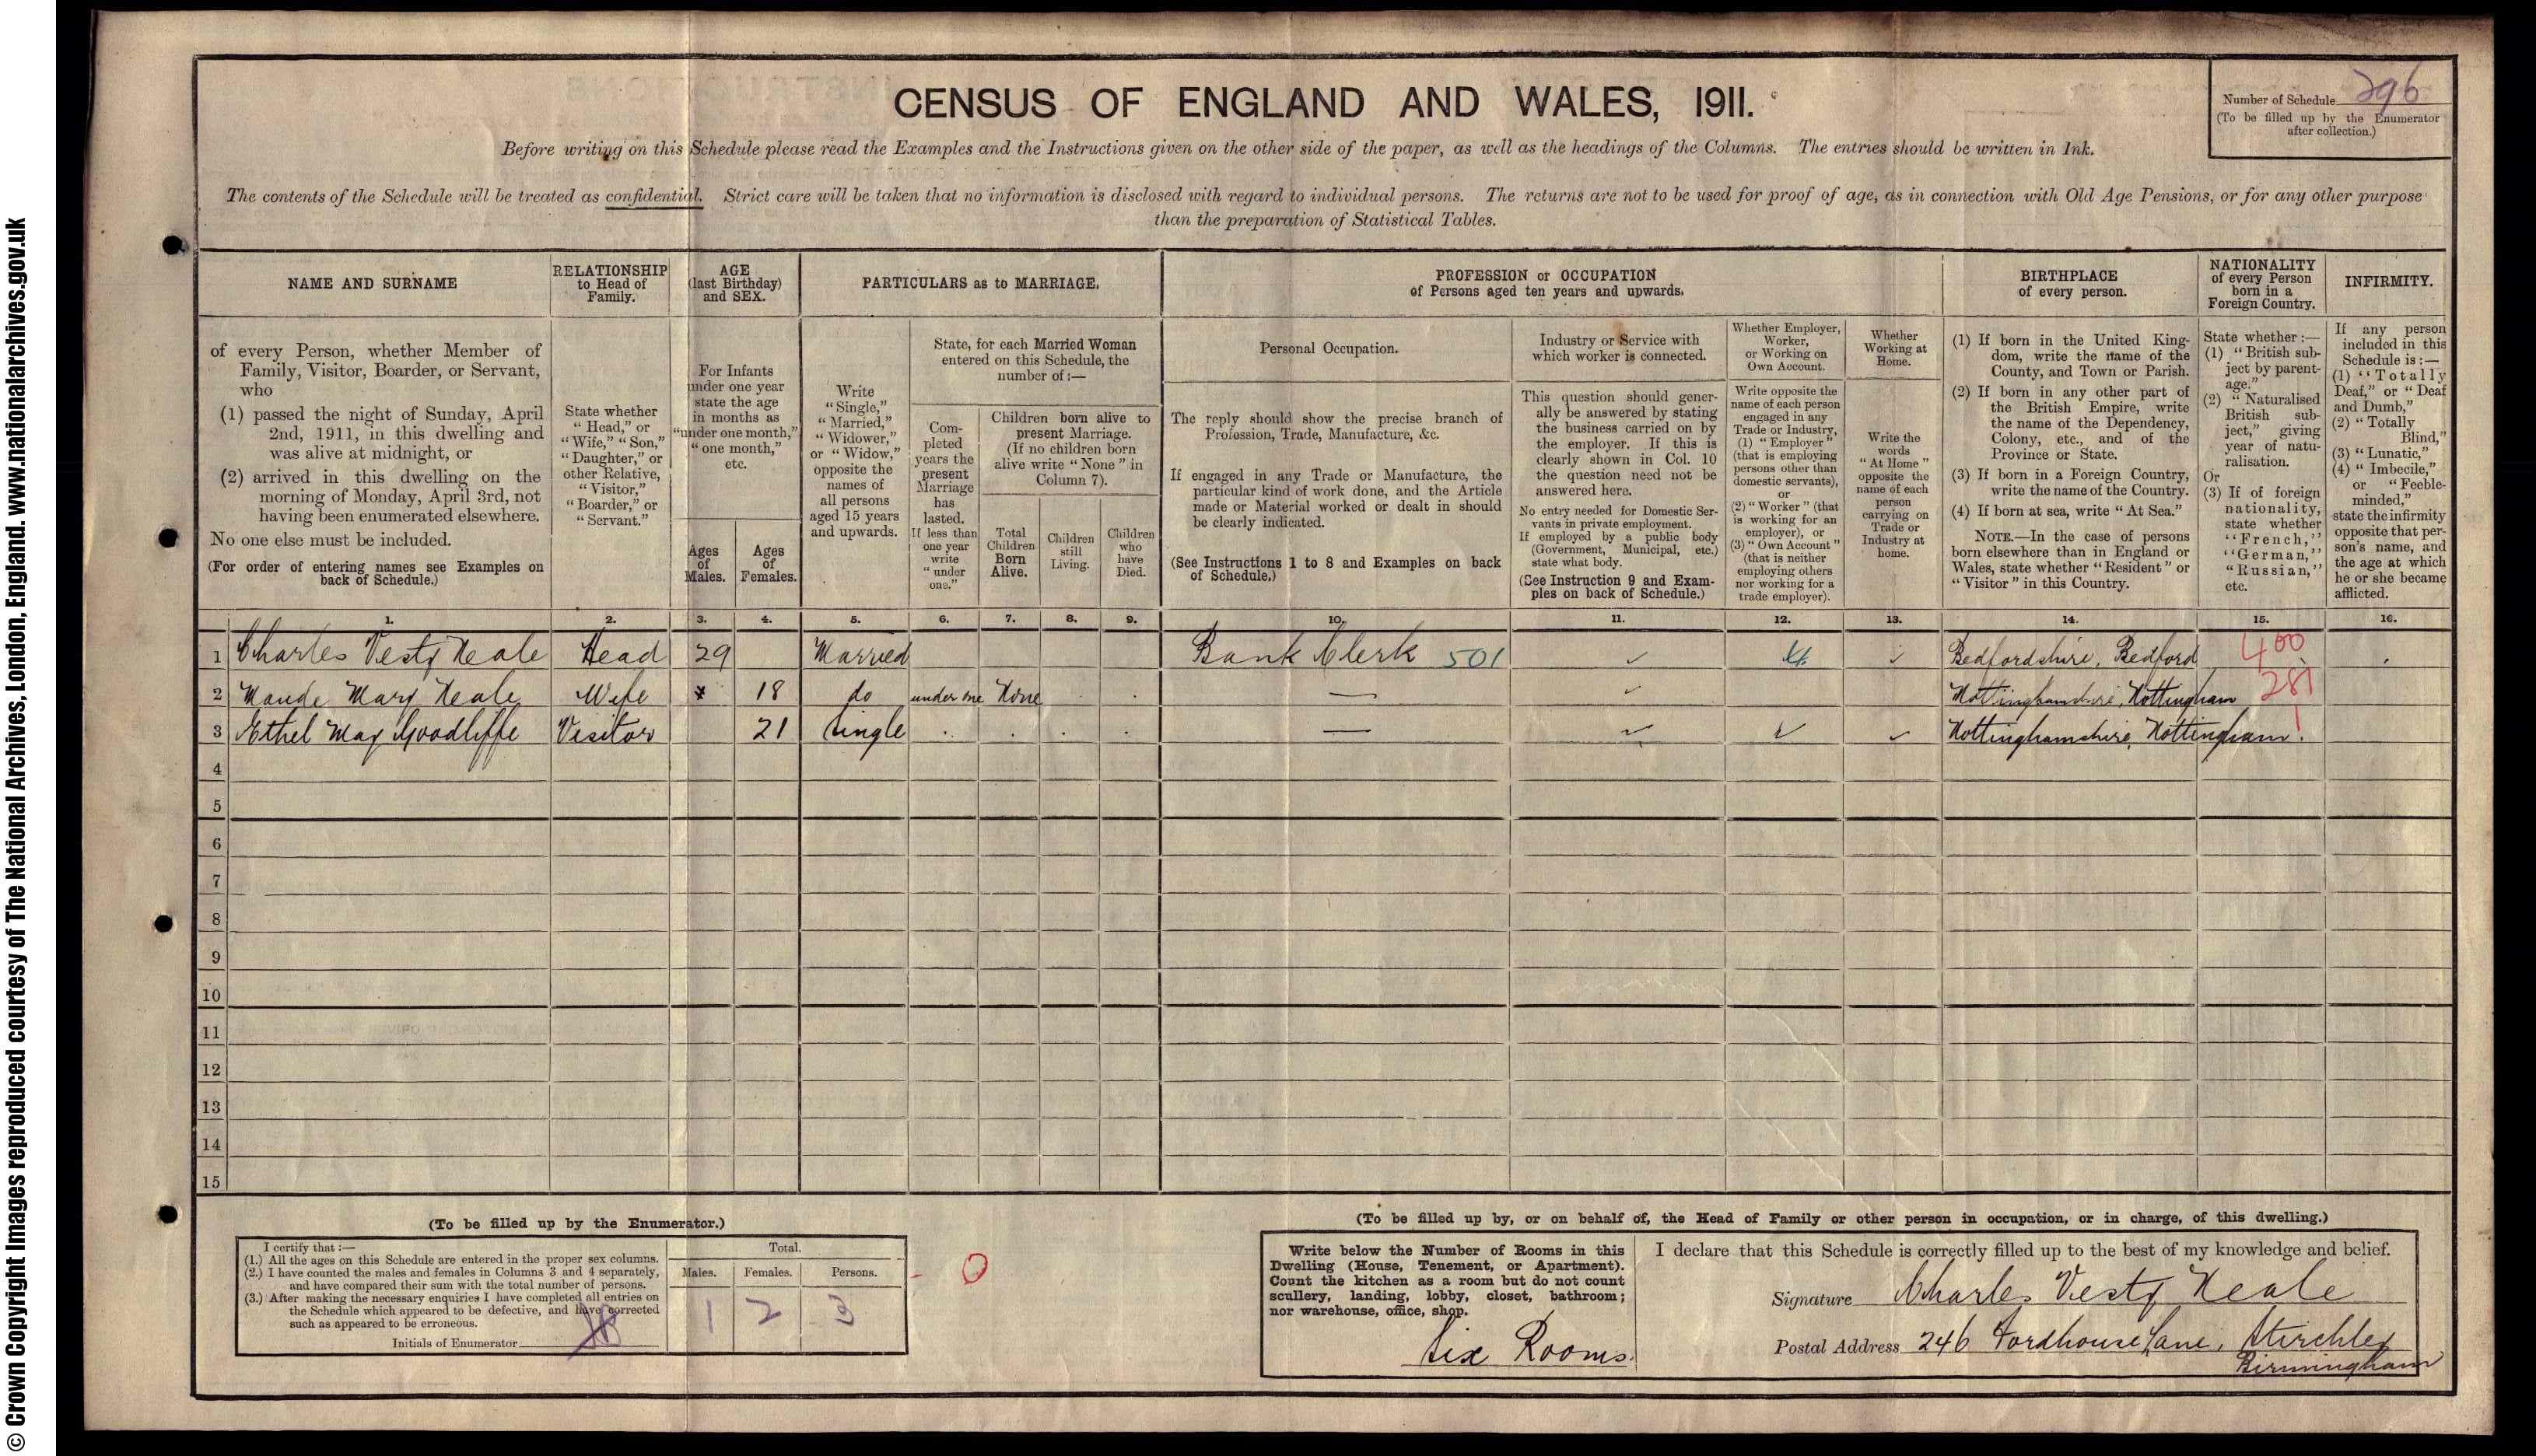 © Crown Copyright Images reproduced courtesy of The National Archives, London, England. www.nationalarchives.gov.uk
CENSUS OF ENGLAND AND WALES, 1911.
Number of Schedule 296
(To be filled up by the Enumerator
after collection.)
Before writing on this Schedule please read the Examples and the Instructions given on the other side of the paper, as well as the headings of the Columns. The entries should be written in Ink.
The contents of the Schedule will be treated as confidential. Strict care will be taken that no information is disclosed with regard to individual persons. The returns are not to be used for proof of age, as in connection with Old Age Pensions, or for any other purpose
than the preparation of Statistical Tables.
NAME AND SURNAME
of every Person, whether Member of
Family, Visitor, Boarder, or Servant,
who
(1) passed the night of Sunday, April
2nd, 1911, in this dwelling and
was alive at midnight, or
(2) arrived in this dwelling on the
morning of Monday, April 3rd, not
having been enumerated elsewhere.
No one else must be included.
(For order of entering names see Examples on
back of Schedule.)
RELATIONSHIP
to Head of
Family.
State whether
"Head," or
"Wife," "Son,"
"Daughter," or
other Relative,
"Visitor,"
"Boarder," or
"Servant."
AGE
(last Birthday)
and SEX.
For Infants
under one year
state the age
in months as
"under one month,"
"one month,"
etc.
Ages
of
Males.
Ages
of
Females.
PARTICULARS as to MARRIAGE.
Write
"Single,"
"Married,"
"Widower,"
or "Widow,"
opposite the
names of
all persons
aged 15 years
and upwards.
State, for each Married Woman
entered on this Schedule, the
number of :—
Com-
pleted
years the
present
Marriage
has
lasted.
If less than
one year
write
"under
one."
Children born alive to
present Marriage.
(If no children born
alive write "None" in
Column 7).
Total
Children
Born
Alive.
Children
still
Living.
Children
who
have
Died.
PROFESSION or OCCUPATION
of Persons aged ten years and upwards.
Personal Occupation.
The reply should show the precise branch of
Profession, Trade, Manufacture, &c.
If engaged in any Trade or Manufacture, the
particular kind of work done, and the Article
made or Material worked or dealt in should
be clearly indicated.
(See Instructions 1 to 8 and Examples on back
of Schedule.)
Industry or Service with
which worker is connected.
This question should gener-
ally be answered by stating
the business carried on by
the employer. If this is
clearly shown in Col. 10
the question need not be
answered here.
No entry needed for Domestic Ser-
vants in private employment.
If employed by a public body
(Government, Municipal, etc.)
state what body.
(See Instruction 9 and Exam-
ples on back of Schedule.)
Whether Employer,
Worker,
or Working on
Own Account.
Write opposite the
name of each person
engaged in any
Trade or Industry,
(1) "Employer"
(that is employing
persons other than
domestic servants),
or
(2) "Worker" (that
is working for an
employer), or
(3) "Own Account"
(that is neither
employing others
nor working for a
trade employer).
Whether
Working at
Home.
Write the
words
"At Home"
opposite the
name of each
person
carrying on
Trade or
Industry at
home.
BIRTHPLACE
of every person.
(1) If born in the United King-
dom, write the name of the
County, and Town or Parish.
(2) If born in any other part of
the British Empire, write
the name of the Dependency,
Colony, etc., and of the
Province or State.
(3) If born in a Foreign Country,
write the name of the Country.
(4) If born at sea, write "At Sea."
NOTE.—In the case of persons
born elsewhere than in England or
Wales, state whether "Resident" or
"Visitor" in this Country.
NATIONALITY
of every Person
born in a
Foreign Country.
State whether :—
(1) "British sub-
ject by parent-
age."
(2) "Naturalised
British sub-
ject," giving
year of natu-
ralisation.
Or
(3) If of foreign
nationality,
state whether
"French,"
"German,"
"Russian,"
etc.
INFIRMITY.
If any person
included in this
Schedule is :—
(1) "Totally
Deaf," or "Deaf
and Dumb,"
(2) "Totally
Blind,"
(3) "Lunatic,"
(4) "Imbecile,"
or "Feeble-
minded,"
state the infirmity
opposite that per-
son's name, and
the age at which
he or she became
afflicted.
1. 2. 3. 4. 5. 6. 7. 8. 9. 10. 11. 12. 13. 14. 15. 16.
1 Charles Vesty Neale Head 29 Married Bank Clerk 501 Bedfordshire, Bedford 400
2 Maude Mary Neale Wife 18 do under one None — Nottinghamshire, Nottingham 281
3 Ethel May Goodliffe Visitor 21 Single — Nottinghamshire, Nottingham.
4
5
6
7
8
9
10
11
12
13
14
15
(To be filled up by the Enumerator.)
I certify that :—
(1.) All the ages on this Schedule are entered in the proper sex columns.
(2.) I have counted the males and females in Columns 3 and 4 separately,
and have compared their sum with the total number of persons.
(3.) After making the necessary enquiries I have completed all entries on
the Schedule which appeared to be defective, and have corrected
such as appeared to be erroneous.
Initials of Enumerator
Total.
Males. Females. Persons.
1 2 3
0
(To be filled up by, or on behalf of, the Head of Family or other person in occupation, or in charge, of this dwelling.)
Write below the Number of Rooms in this
Dwelling (House, Tenement, or Apartment).
Count the kitchen as a room but do not count
scullery, landing, lobby, closet, bathroom;
nor warehouse, office, shop.
Six Rooms.
I declare that this Schedule is correctly filled up to the best of my knowledge and belief.
Signature Charles Vesty Neale
Postal Address 246 Fordhouse Lane, Stirchley
Birmingham